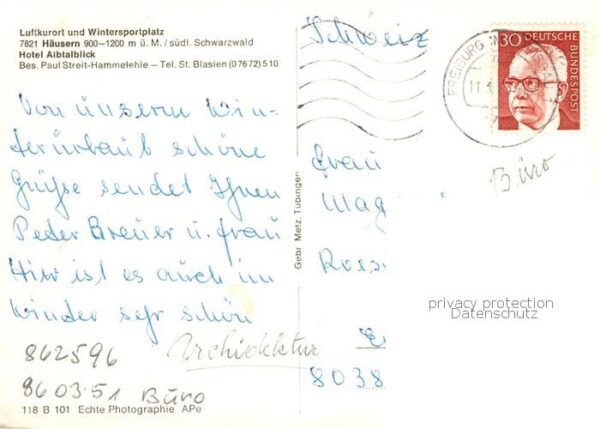 Luftkurort und Wintersportplatz
7821 Häusern 900–1200 m ü. M./südl. Schwarzwald
Hotel Albtalblick
Bes. Paul Streit-Hammelehle – Tel. St. Blasien (07672) 510
Von unserm Win-
terurlaub schöne
Grüße sendet Ihnen
Peter Breuer u. Frau
Hier ist es auch im
Winder sehr schön
862596
860351 Büro
Archidektur
118 B 101 Echte Photographie APe
Gebr. Metz, Tübingen
Schweiz
FREIBURG
11.
30 DEUTSCHE BUNDESPOST
Büro
Frau
Mag
Roes
8038
privacy protection
Datenschutz